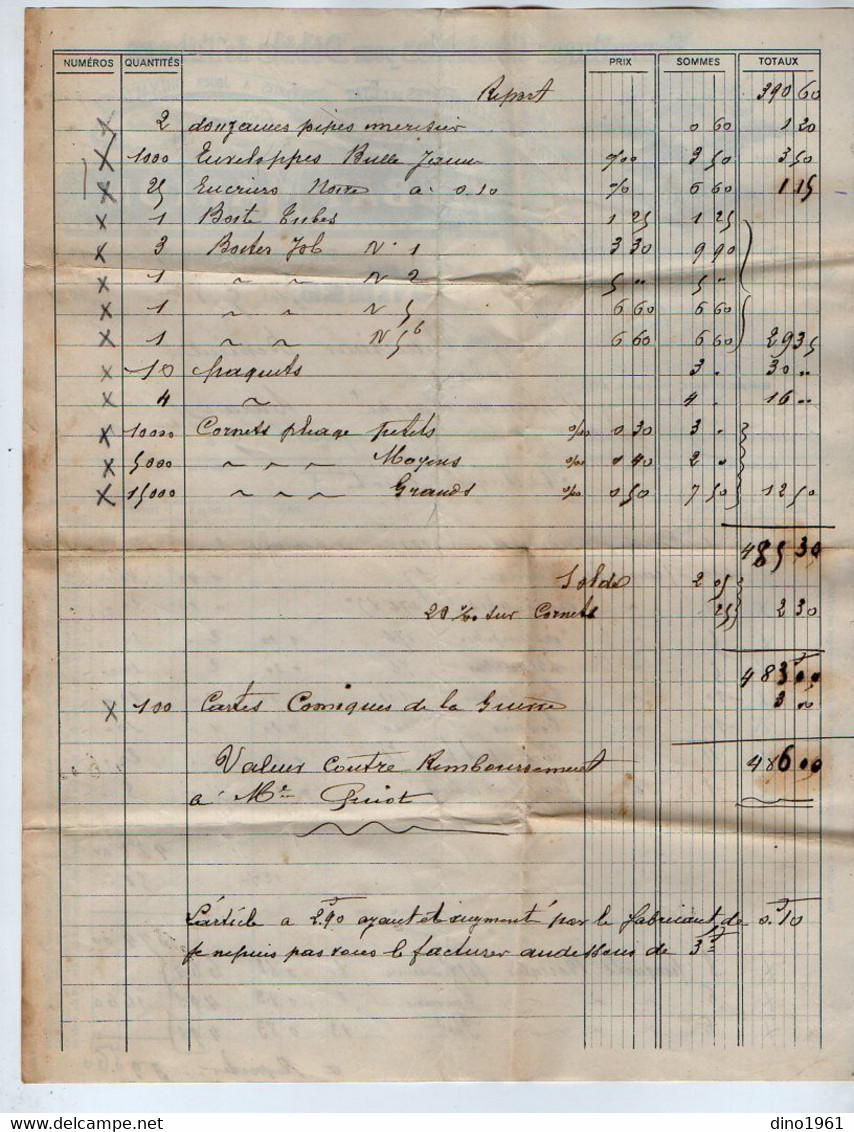 NUMÉROS QUANTITÉS PRIX SOMMES TOTAUX
Report 390 60
x 2 douzaines pipes merisier 0 60 1 20
x 1000 Enveloppes Bulle Jaune %00 3 50 3 50
x 25 Encriers Noire a 0.10 % 6 60 1 15
x 1 Boite Tubes 1 25 1 25
x 3 Boites Job N° 1 3 30 9 90
x 1 ~ ~ N 2 5 " 5 "
x 1 ~ ~ N 5 6 60 6 60
x 1 ~ ~ N 5 b 6 60 6 60 29 35
x 10 paquets 3 . 30 "
x 4 ~ 4 . 16 "
x 10000 Cornets pliage petits %00 0 30 3 .
x 5000 ~ ~ ~ Moyens %00 0 40 2 .
x 15000 ~ ~ ~ Grands %00 0 50 7 50 12 50
485 30
Solde 2 05
20 % sur Cornets 25 2 30
483 00
x 100 Cartes Comiques de la Guerre 3 00
486 00
Valeur contre Remboursement
a Mr Guiot
L'article a 2f90 ayant été augmenté par le fabricant de 0f.10
je nepuis pas vous le facturer audessous de 3f
dino1961